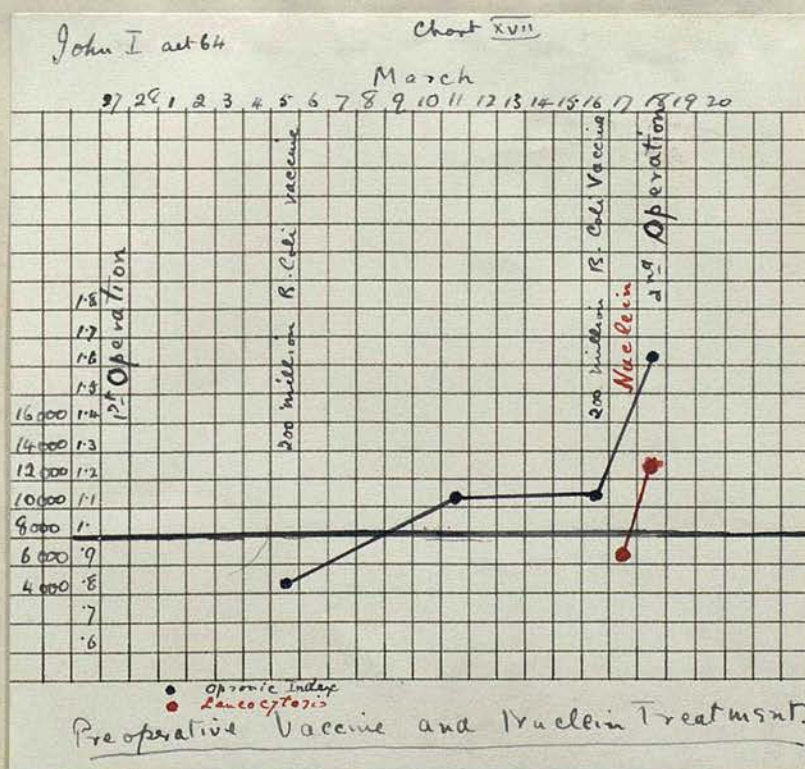 Chart XVII
John I aet 64
March
27 28 1 2 3 4 5 6 7 8 9 10 11 12 13 14 15 16 17 18 19 20
1st Operation
200 million B. Coli vaccine
200 million B. Coli Vaccine
Nuclein
2nd Operation
1.8
1.7
1.6
1.5
16000 1.4
14000 1.3
12000 1.2
10000 1.1
8000 1.
6000 .9
4000 .8
.7
.6
Opsonic Index
Leucocytosis
Preoperative Vaccine and Nuclein Treatment.